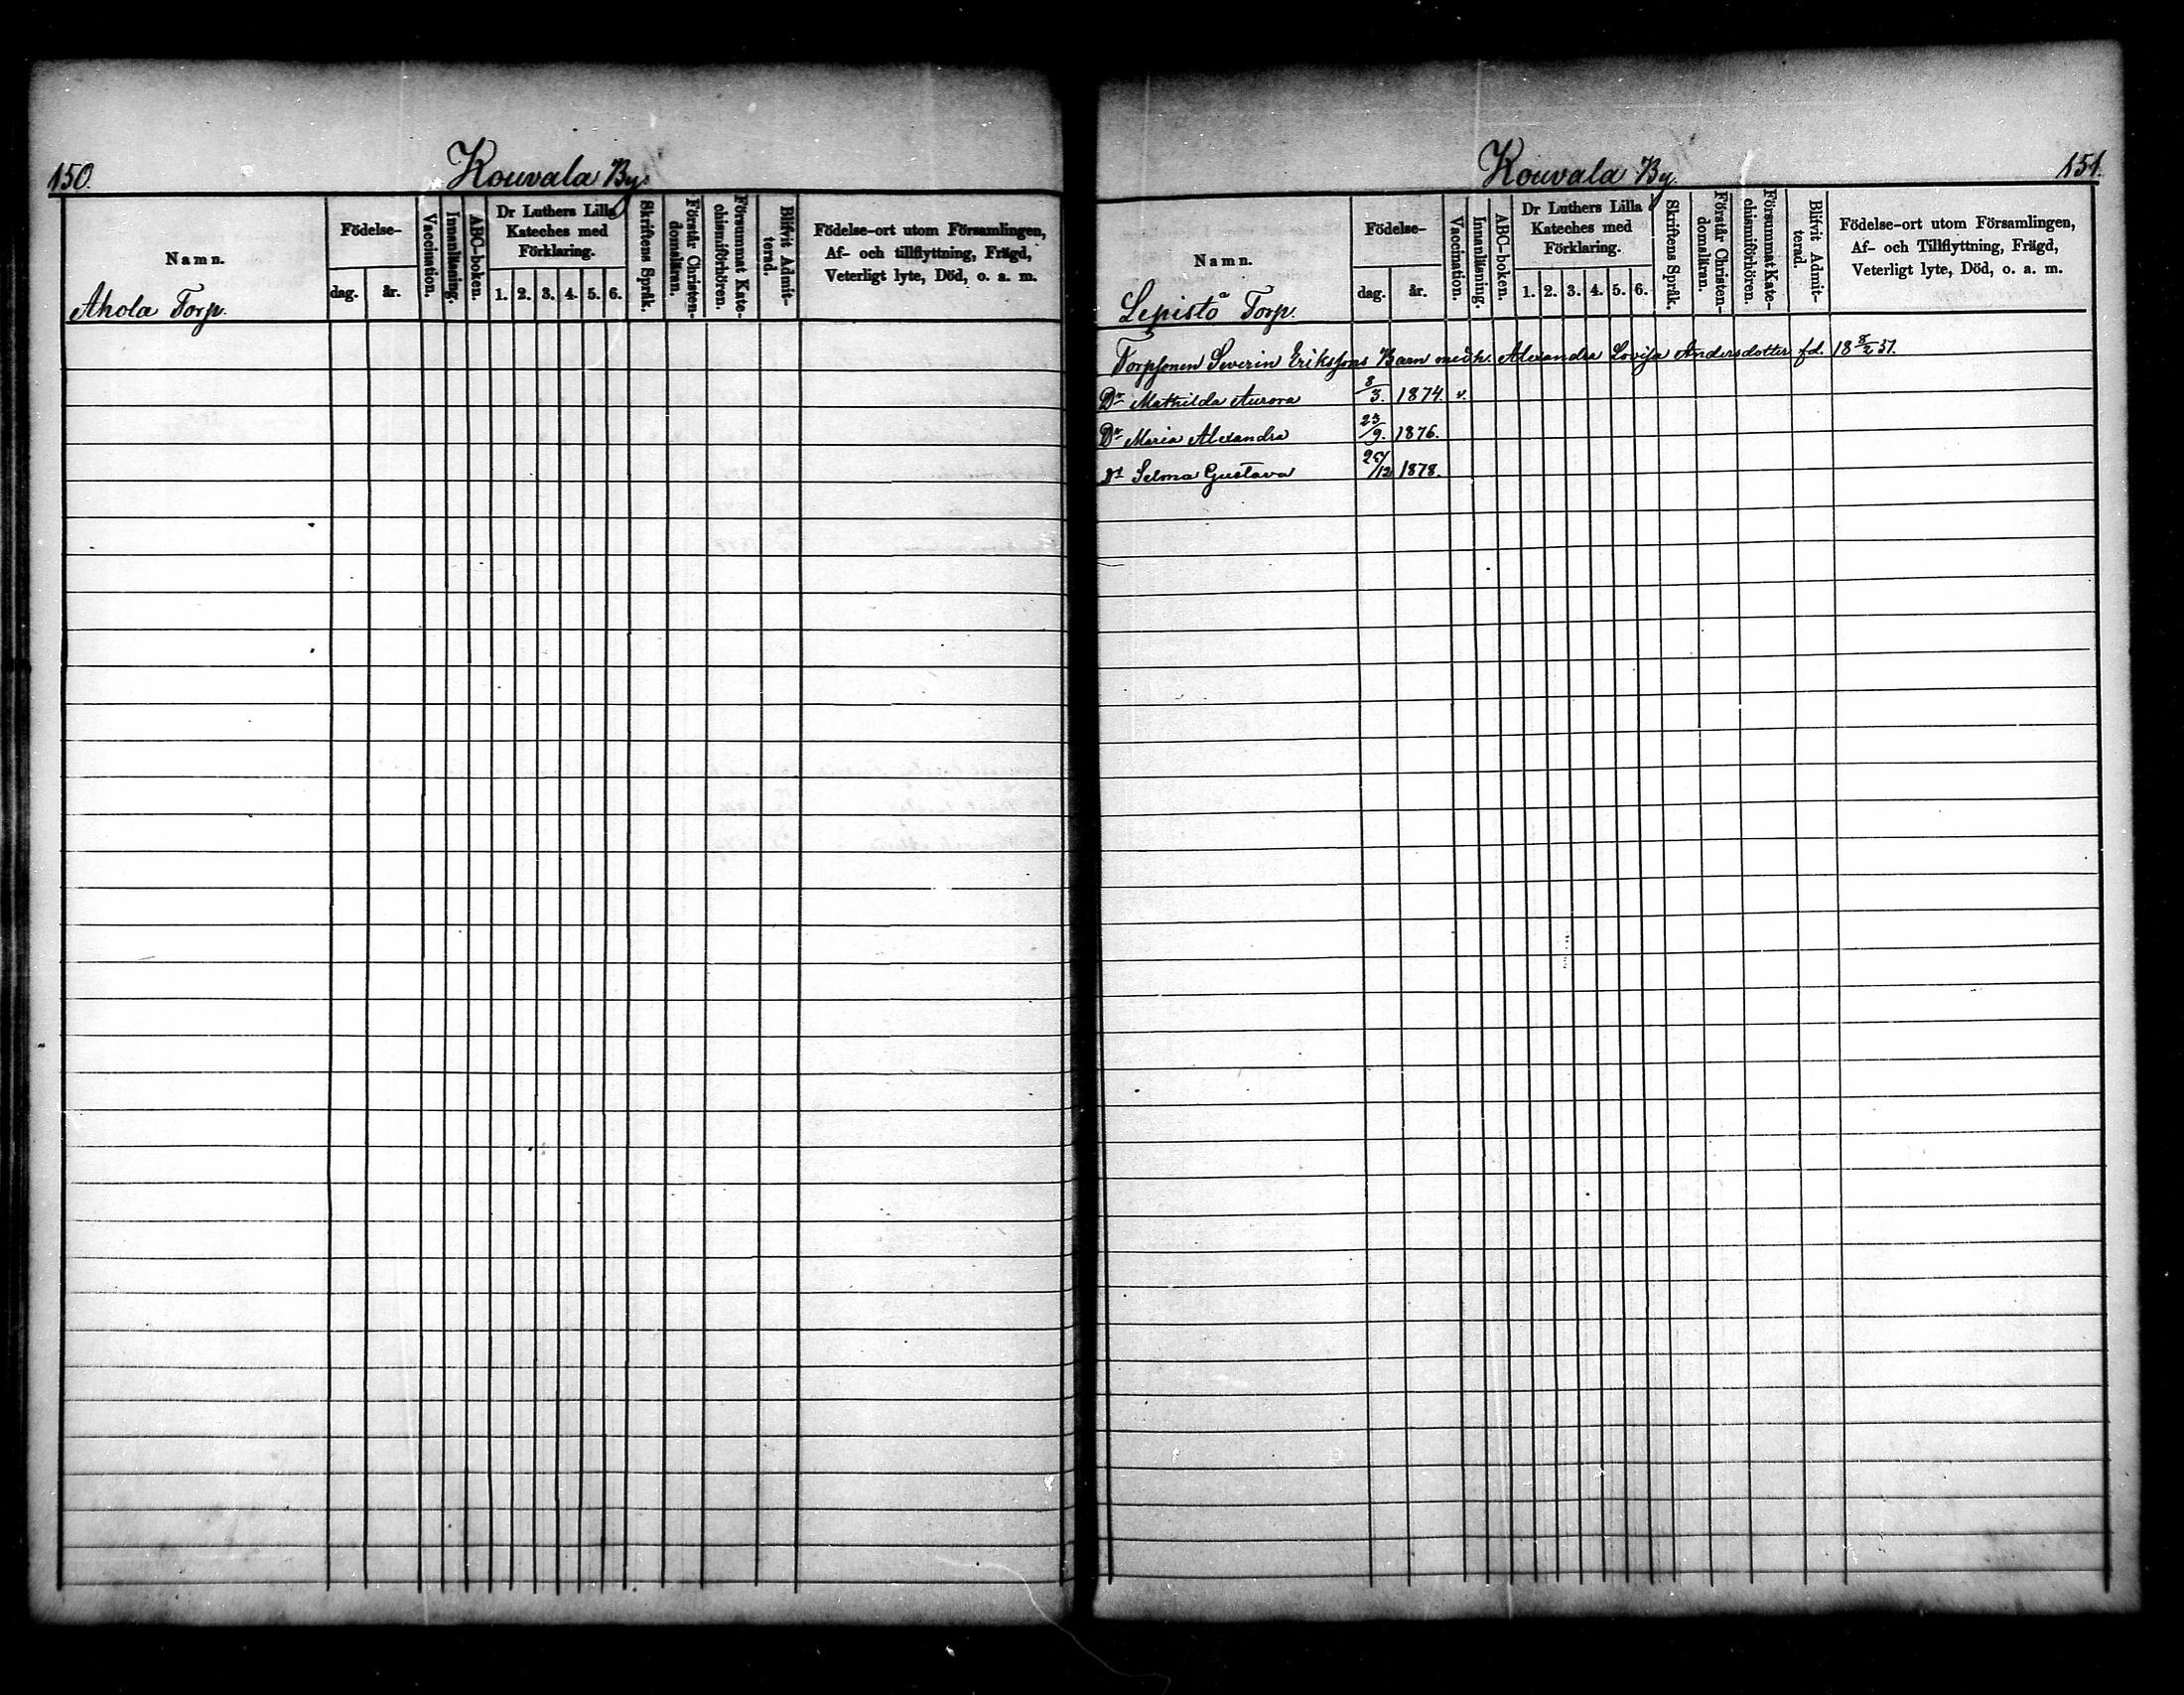 150.
Kouvala By.
Namn.
Födelse-
dag.
år.
Vaccination.
Innanläsning.
ABC-boken.
Dr Luthers Lilla
Kateches med
Förklaring.
1. 2. 3. 4. 5. 6.
Skriftens Språk.
Förstår Christen-
domsläran.
Försummat Kate-
chismiförhören.
Blifvit Admit-
terad.
Födelse-ort utom Församlingen,
Af- och tillflyttning, Frägd,
Veterligt lyte, Död, o. a. m.
Ahola Torp.
151.
Kouvala By.
Namn.
Födelse-
dag.
år.
Vaccination.
Innanläsning.
ABC-boken.
Dr Luthers Lilla
Kateches med
Förklaring.
1. 2. 3. 4. 5. 6.
Skriftens Språk.
Förstår Christen-
domsläran.
Försummat Kate-
chismiförhören.
Blifvit Admit-
terad.
Födelse-ort utom Församlingen,
Af- och Tillflyttning, Frägd,
Veterligt lyte, Död, o. a. m.
Lepistö Torp.
Torpsonen Severin Erikssons Barn med h. Alexandra Lovisa Andersdotter fd. 18 8/2 51.
Dr Mathilda Aurora 8/3. 1874. v.
Dr Maria Alexandra 23/9. 1876.
Dr Selma Gustava 25/12 1878.